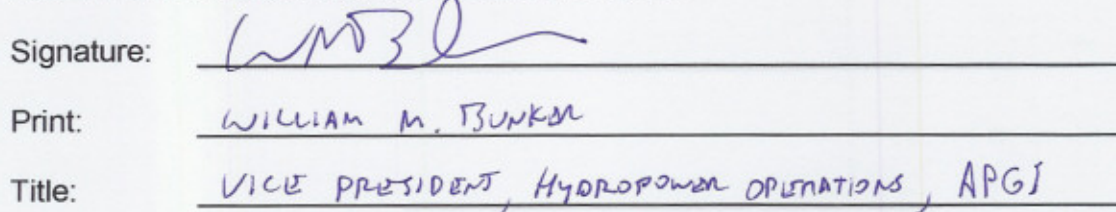 Signature: WMB
Print: WILLIAM M. BUNKER
Title: VICE PRESIDENT, HYDROPOWER OPERATIONS, APGI